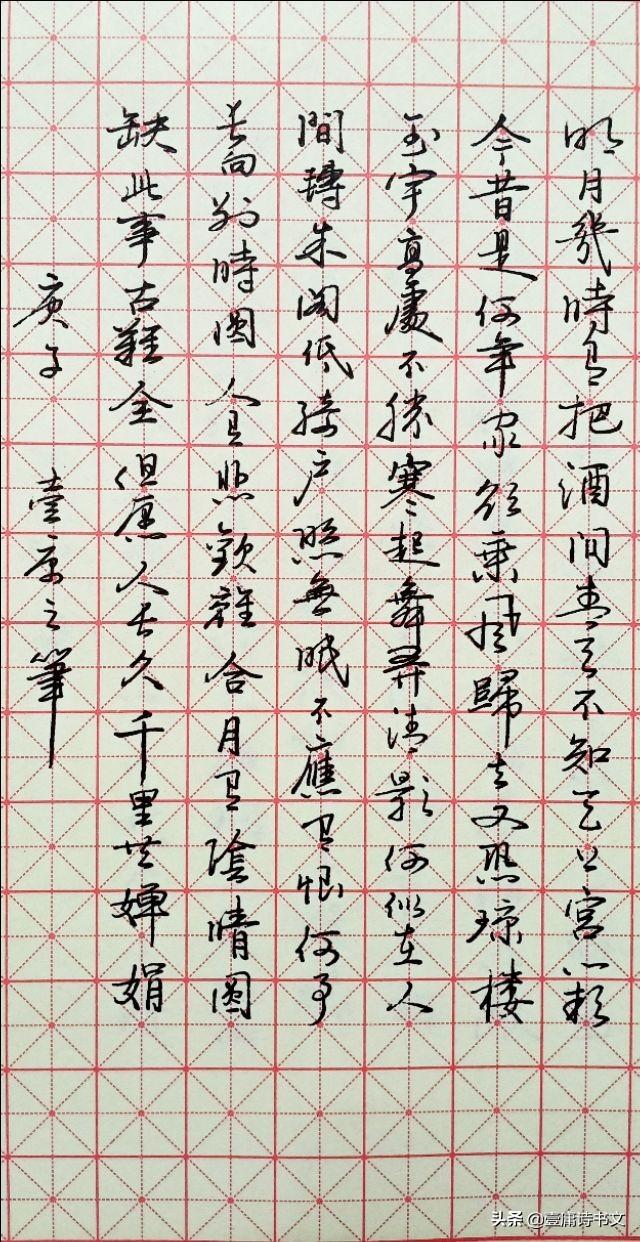 明月幾時有把酒問青天不知天上宮闕
今昔是何年我欲乘風歸去又恐琼楼
玉宇高處不勝寒起舞弄清影何似在人
間轉朱閣低綺户照無眠不應有恨何事
長向别時圓人有悲歡離合月有陰晴圓
缺此事古難全但愿人長久千里共嬋娟
庚子 壹庸之筆
头条 @壹庸詩书文